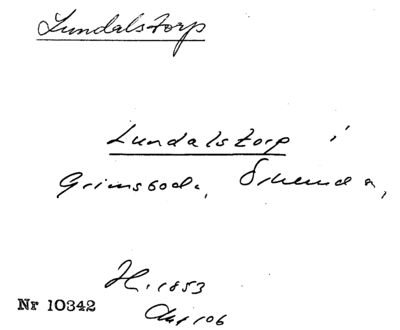 Lundalstorp
Lundalstorp i
Grimsboda, Ökenda,
H. 1853
Nr 10342
Akt 106